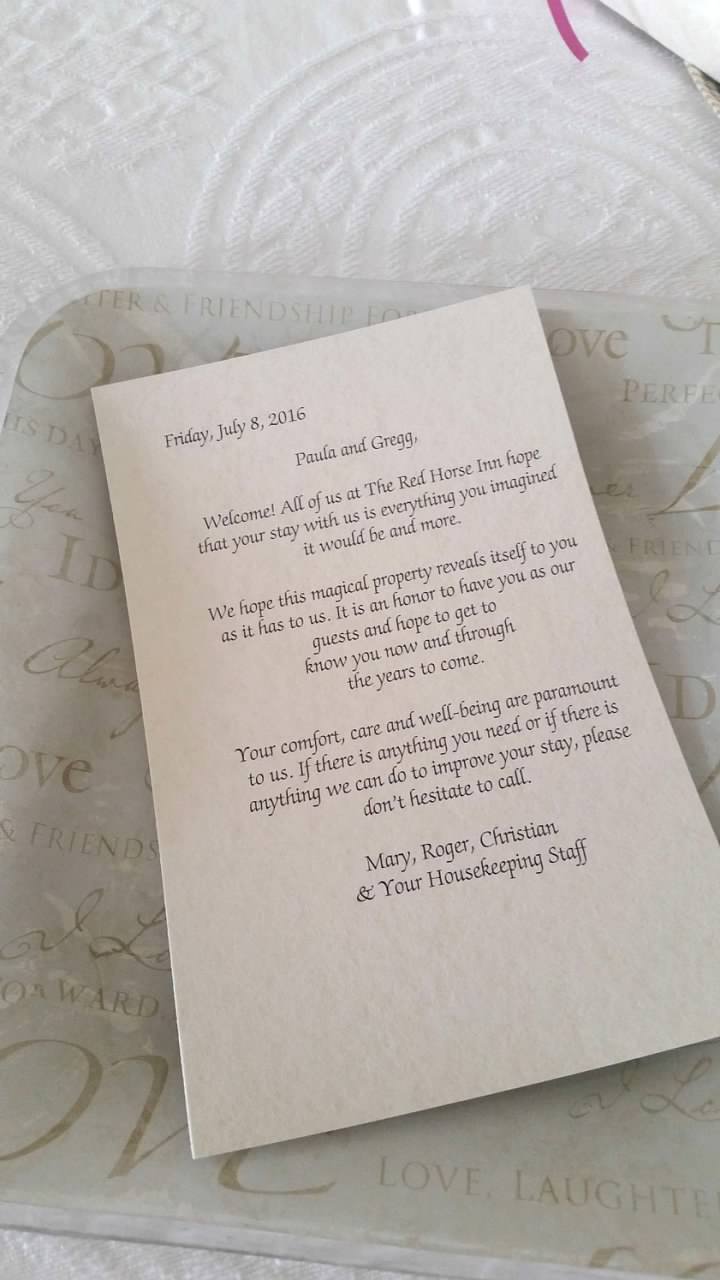 & FRIENDSHIP
Love
HIS DAY
You
FRIEND
Love
& FRIENDS
I Lo
WARD
LOVE, LAUGHTE
Friday, July 8, 2016
Paula and Gregg,
Welcome! All of us at The Red Horse Inn hope
that your stay with us is everything you imagined
it would be and more.
We hope this magical property reveals itself to you
as it has to us. It is an honor to have you as our
guests and hope to get to
know you now and through
the years to come.
Your comfort, care and well-being are paramount
to us. If there is anything you need or if there is
anything we can do to improve your stay, please
don't hesitate to call.
Mary, Roger, Christian
& Your Housekeeping Staff